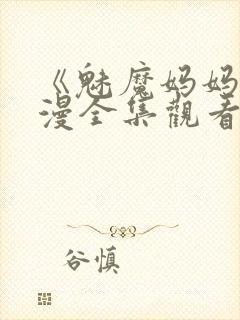 《魅魔妈妈
漫全集觀看
谷慎